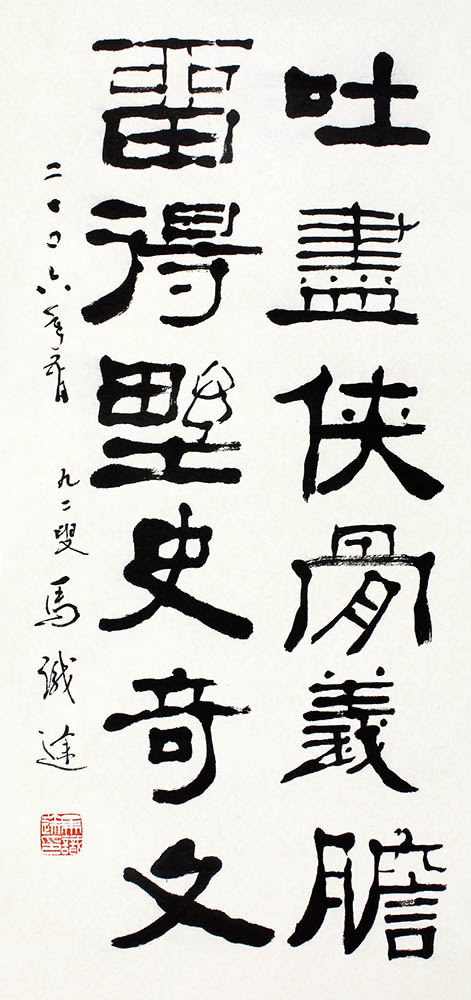 吐盡俠骨義膽
畱得野史奇文
二〇〇六年五月 九二叟 馬識途
馬識途印